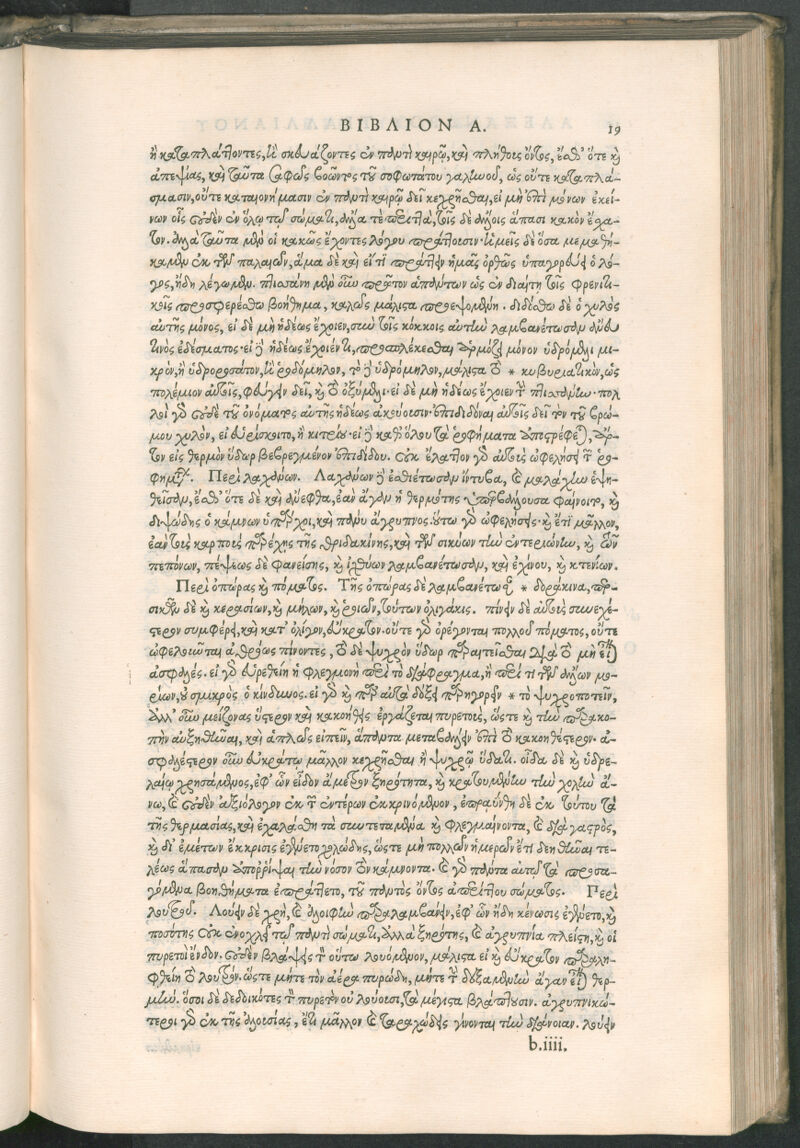 ΒΙΒΛΙΟΝ Α. 19
ἢ καταπλάττοντες, ἢ σκευάζοντες ἐν παντὶ καιρῷ, καὶ πλήθους ὄντος, ἔσθ' ὅτε καὶ
ἀπεψίας, καὶ ταῦτα σαφῶς βοῶντος τοῦ σοφωτάτου γαληνοῦ, ὡς οὔτε καταπλά-
σμασιν, οὔτε καταιονήμασιν ἐν παντὶ καιρῷ δεῖ κεχρῆσθαι, εἰ μὴ ἐπὶ μόνων ἐκεί-
νων οἷς οὐδὲν ἐν ὅλῳ τῷ σώματι, τοῖς δὲ ἄλλοις ἅπασι κακὸν ἔσχα-
τον. ἀλλὰ ταῦτα μὲν οἱ κακῶς ἔχοντες λόγου πράττουσιν. ἡμεῖς δὲ ὅσα μεμαθή-
καμεν ἐκ τῶν παλαιῶν, ἅμα δὲ καὶ εἴ τι πράττειν ἡμᾶς ὀρθῶς ὑπαγορεύει ὁ λό-
γος, ἤδη λέγωμεν. πτισάνη μὲν οὖν πρῶτον ἁπάντων ὡς ἐν διαίτῃ τοῖς φρενιτι-
κοῖς προσφερέσθω βοήθημα, καλῶς μάλιστα προεψομένη. διδόσθω δὲ ὁ χυλὸς
αὐτῆς μόνος, εἰ δὲ μὴ ἡδέως ἔχοιεν, σὺν τοῖς κόκκοις αὐτὴν λαμβανέτωσαν ἄνευ
τινὸς ἐδέσματος. εἰ δὲ ἡδέως ἔχοιέν τι, προσπλέκεσθαι ἁρμόζει μόνον ὑδρόμηλι μι-
κρὸν, ἢ ὑδροροσάτον, ἢ ῥοδόμηλον, τὸ δὲ ὑδρόμηλον, μάλιστα τὸ * κιβυριατικὸν, ὡς
πολέμιον αὐτοῖς, φεύγειν δεῖ, καὶ τὸ ὀξύμελι. εἰ δὲ μὴ ἡδέως ἔχοιεν τὴν πτισάνην. πολ
λοὶ γὰρ οὐδὲ τοῦ ὀνόματος αὐτῆς ἡδέως ἀκούουσιν. ἐπιδιδόναι αὐτοῖς δεῖ τὸν τοῦ βρώ-
μου χυλὸν, εἰ εὑρίσκοιτο, ἢ κιτρίου. εἰ δὲ καθ' ὅλου τὰ ῥοφήματα ἀποστρέφεται, ἄρ-
τον εἰς θερμὸν ὕδωρ βεβρεγμένον ἐπιδίδου. οὐκ ἔλαττον γὰρ αὐτοὺς ὠφελήσει τῶν ῥο-
φημάτων. Περὶ λαχάνων. Λαχάνων δὲ ἐσθιέτωσαν ἴντυβα, καὶ μαλάχην ἑψη-
θεῖσαν, ἔσθ' ὅτε δὲ καὶ ἄνεφθα, ἐὰν ἄγαν ἡ θερμότης ὑπερβάλλουσα φαίνοιτο, καὶ
διψώδης ὁ κάμνων ὑπάρχοι, καὶ πάνυ ἄγρυπνος. οὕτω γὰρ ὠφελήσεις καὶ ἔτι μᾶλλον,
ἐὰν τοὺς καρποὺς παρέχῃς τῆς θριδακίνης, καὶ τῶν σικύων τὴν ἐντεριώνην, καὶ τῶν
πεπόνων, πέψεως δὲ φανείσης, καὶ ἰχθύων λαμβανέτωσαν, καὶ ἐχίνου, καὶ κτενίων.
Περὶ ὀπώρας καὶ πόματος. Τῆς ὀπώρας δὲ λαμβανέτωσαν * δοράκινα, περ-
σικῶν δὲ καὶ κερασίων, καὶ μήλων, καὶ ῥοιῶν, τούτων ὀλιγάκις. πίνειν δὲ αὐτοῖς συνεχέ-
στερον συμφέρει, καὶ κατ' ὀλίγον, εὔκρατον. οὔτε γὰρ ὀρέγονται πολλοῦ πόματος, οὔτε
ὠφελοῦνται ἀθρόως πίνοντες, τὸ δὲ ψυχρὸν ὕδωρ παραιτεῖσθαι διὰ τὸ μὴ εἶναι
ἀσφαλές. εἰ γὰρ εὑρεθείη ἡ φλεγμονὴ περὶ τὸ διάφραγμα, ἢ περί τι τῶν ἄλλων μο-
ρίων, οὐ σμικρὸς ὁ κίνδυνος. εἰ γὰρ καὶ παρ' αὐτὰ δόξει παρηγορεῖν * τὸ ψυχροποτεῖν,
ἀλλ' οὖν μείζονας ὕστερον καὶ κακοήθεις ἐργάζεται πυρετοὺς, ὥστε καὶ τὴν παρακο-
πὴν αὐξηθῆναι, καὶ ἁπλῶς εἰπεῖν, ἅπαντα μεταβάλλειν ἐπὶ τὸ κακοηθέστερον. ἀ-
σφαλέστερον οὖν εὐκράτῳ μᾶλλον κεχρῆσθαι ἢ ψυχρῷ ὕδατι. οἶδα δὲ καὶ ὑδρε-
λαίῳ χρησάμενος, ἐφ' ὧν εἶδον ἄμετρον ξηρότητα, καὶ κρατουμένην τὴν χολὴν ἄ-
νω, καὶ οὐδὲν ἀξιόλογον ἐκ τῶν ἐντέρων ἐκκρινόμενον, ἐπραΰνθη δὲ ἐκ τούτου τὰ
τῆς θερμασίας, καὶ ἐχαλάσθη τὰ συντεταμένα καὶ φλεγμαίνοντα, καὶ διὰ γαστρὸς,
καὶ δι' ἐμέτων ἔκκρισις ἐγένετο χολώδης, ὥστε μὴ πολλῶν ἡμερῶν ἔτι δεηθῆναι τε-
λέως ἅπασαν ἀπορρίψαι τὴν νόσον τὸν κάμνοντα. καὶ γὰρ πάντα αὐτῷ τὰ προσα-
γόμενα βοηθήματα ἐπράττετο, τοῦ παντὸς ὄντος ἀπερίττου σώματος. Περὶ
λουτροῦ. Λούειν δὲ χρὴ, καὶ ἀλοιφὴν παραλαμβάνειν, ἐφ' ὧν ἤδη κένωσις ἐγένετο, καὶ
ποσότης οὐκ ἐνοχλεῖ τῷ παντὶ σώματι, ἀλλὰ ξηρότης, καὶ ἀγρυπνία πλείστη, καὶ οἱ
πυρετοὶ ἔνδον. οὐδὲν βλάψεις τὸν οὕτω λουόμενον, μάλιστα εἰ καὶ εὔκρατον παραλη-
φθείη τὸ λουτρόν. ὥστε μήτε τὸν ἀέρα πυρώδη, μήτε τὴν δεξαμένην ἄγαν εἶναι θερ-
μήν. ὅσοι δὲ δεδοικότες τὸν πυρετὸν οὐ λούουσι, τὰ μέγιστα βλάπτουσιν. ἀγρυπνικώ-
τεροι γὰρ ἐκ τῆς ἀλουσίας, ἔτι μᾶλλον καὶ ταραχώδεις γίνονται τὴν διάνοιαν. λούειν
b.iiii.